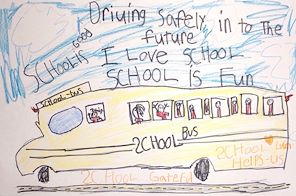 Driving Safely in to The
future
SCHOOL IS GOOD
I Love SCHOOL
SCHOOL IS Fun
SCHOOL-bus
2CHOOL BUS
2CHOOL
HELPS-US
2CHOOL Gateful